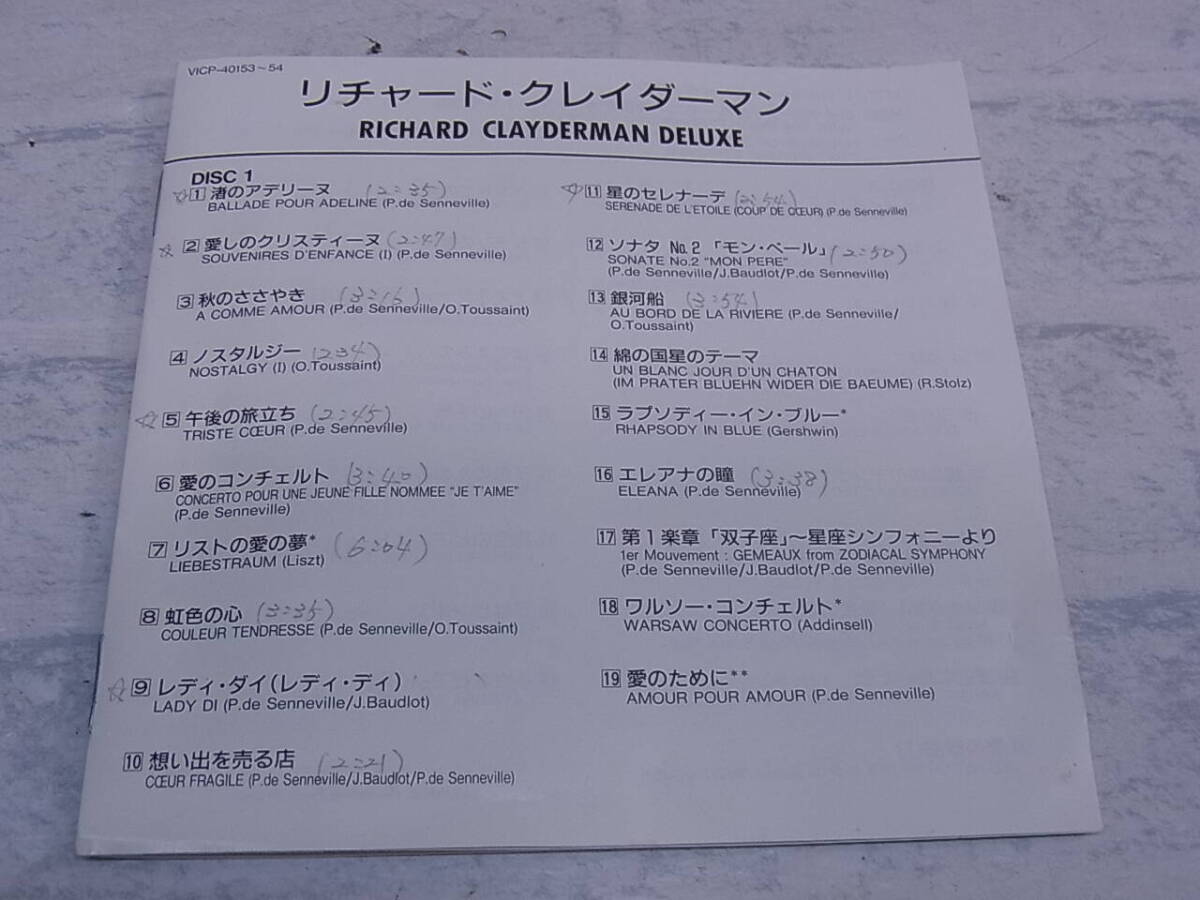 VICP-40153～54
リチャード・クレイダーマン
RICHARD CLAYDERMAN DELUXE
DISC 1
☆1 渚のアデリーヌ (2:35)
BALLADE POUR ADELINE (P.de Senneville)
☆2 愛しのクリスティーヌ (2:47)
SOUVENIRES D'ENFANCE (I) (P.de Senneville)
3 秋のささやき (3:16)
A COMME AMOUR (P.de Senneville/O.Toussaint)
4 ノスタルジー (234)
NOSTALGY (I) (O.Toussaint)
☆5 午後の旅立ち (2:45)
TRISTE CŒUR (P.de Senneville)
6 愛のコンチェルト (3:40)
CONCERTO POUR UNE JEUNE FILLE NOMMEE "JE T'AIME"
(P.de Senneville)
7 リストの愛の夢* (6:04)
LIEBESTRAUM (Liszt)
8 虹色の心 (3:35)
COULEUR TENDRESSE (P.de Senneville/O.Toussaint)
☆9 レディ・ダイ(レディ・ディ)
LADY DI (P.de Senneville/J.Baudlot)
10 想い出を売る店 (2:21)
CŒUR FRAGILE (P.de Senneville/J.Baudlot/P.de Senneville)
☆11 星のセレナーデ
SERENADE DE L'ETOILE (COUP DE CŒUR) (P.de Senneville)
12 ソナタ No.2 「モン・ペール」 (2:50)
SONATE No.2 "MON PERE"
(P.de Senneville/J.Baudlot/P.de Senneville)
13 銀河船 (3:54)
AU BORD DE LA RIVIERE (P.de Senneville/
O.Toussaint)
14 綿の国星のテーマ
UN BLANC JOUR D'UN CHATON
(IM PRATER BLUEHN WIDER DIE BAEUME) (R.Stolz)
15 ラプソディー・イン・ブルー*
RHAPSODY IN BLUE (Gershwin)
16 エレアナの瞳 (3:38)
ELEANA (P.de Senneville)
17 第1楽章「双子座」～星座シンフォニーより
1er Mouvement : GEMEAUX from ZODIACAL SYMPHONY
(P.de Senneville/J.Baudlot/P.de Senneville)
18 ワルソー・コンチェルト*
WARSAW CONCERTO (Addinsell)
19 愛のために**
AMOUR POUR AMOUR (P.de Senneville)